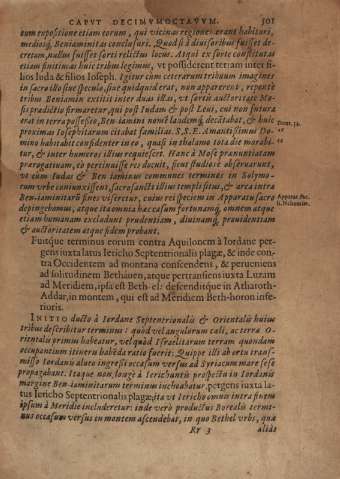 CAPVT DECIMVMOCTAVVM. 301
tum expositione etiam eorum, qui vicinas regiones erant habituri,
mediosq́ Beniaminitas conclusuri. Quod si à diuisoribus fuisset de-
cretum, nullus fuisset sortireliclus locus. Atqui ex sorte constitutas
etiam finitimas huic tribus legimus, vt possiderent terram inter fi-
lios Iuda & filios Ioseph. Igitur cum ceterarum tribuum imagines
in sacro illo siue specula, siue quidquid erat, non apparerent, repente
tribus Beniamin extitit inter duas illas, vt sortis auctoritate Mo-
sis prædictio firmaretur, qui post Iudam & post Leui, cui non futura
erat in terra possessio, Ben-iamini nomẽ laudemq́ decãtabat, & huic
proximas Iosephitarum citabat familias. S.S.E. Amantissimus Do-
mino habitabit confidenter in eo, quasi in thalamo tota die morabi-
tur, & inter humeros illius requiescet. Hanc à Mose prænuntiatam
prærogatiuam, eo pertinuisse res docuit, sicut studiosi obseruarunt,
vt cum Iudas & Ben iaminus communes terminos in Solymo-
rum vrbe coniunxissent, sacrosancti illius templi situs, & arca intra
Ben-iaminitarũ fines viseretur, cuius rei speciem in Apparatu sacro
depingebamus, atque ita omnia bac casum fortunamq́, omnem atque
etiam humanam excludunt prudentiam, diuinamq́, prouidentiam
& auctoritatem atque fidem probant.
Deut. 33.
12
Apparat. sac.
Fuitque terminus eorum contra Aquilonem à Iordane per-
gens iuxta latus Iericho Septentrionalis plagæ, & inde con-
tra Occidentem ad montana conscendens, & perueniens
ad solitudinem Bethauen, atque pertransiens iuxta Luzam
ad Meridiem, ipsa est Beth-el: descenditque in Ataroth-
Addar, in montem, qui est ad Meridiem Beth-horon infe-
rioris.
INITIO ducto à Iordane Septentrionalis & Orientalis huius
tribus describitur terminus: quod vel angulorum cali, ac terra O-
rientalis primus habeatur, vel quòd Israelitarum terram quondam
occupantium itineru habẽda ratio fuerit: Quippe illi ab ortu trans-
misso Iordanis alueo ingressi occasum versus ad Syriacum mare sese
propagabant. Itaque non longè à Ierichuntis prospectu in Iordanis
margine Ben-iaminitarum terminus inchoabatur, pergens iuxta la-
tus Iericho Septentrionalis plagæ, ita vt Iericho omnis intra finem
ipsum à Meridie includeretur: inde verò productus Borealis termi-
nus occasum versus in montem ascendebat, in quo Bethel vrbs, quæ
Rr 3 alias